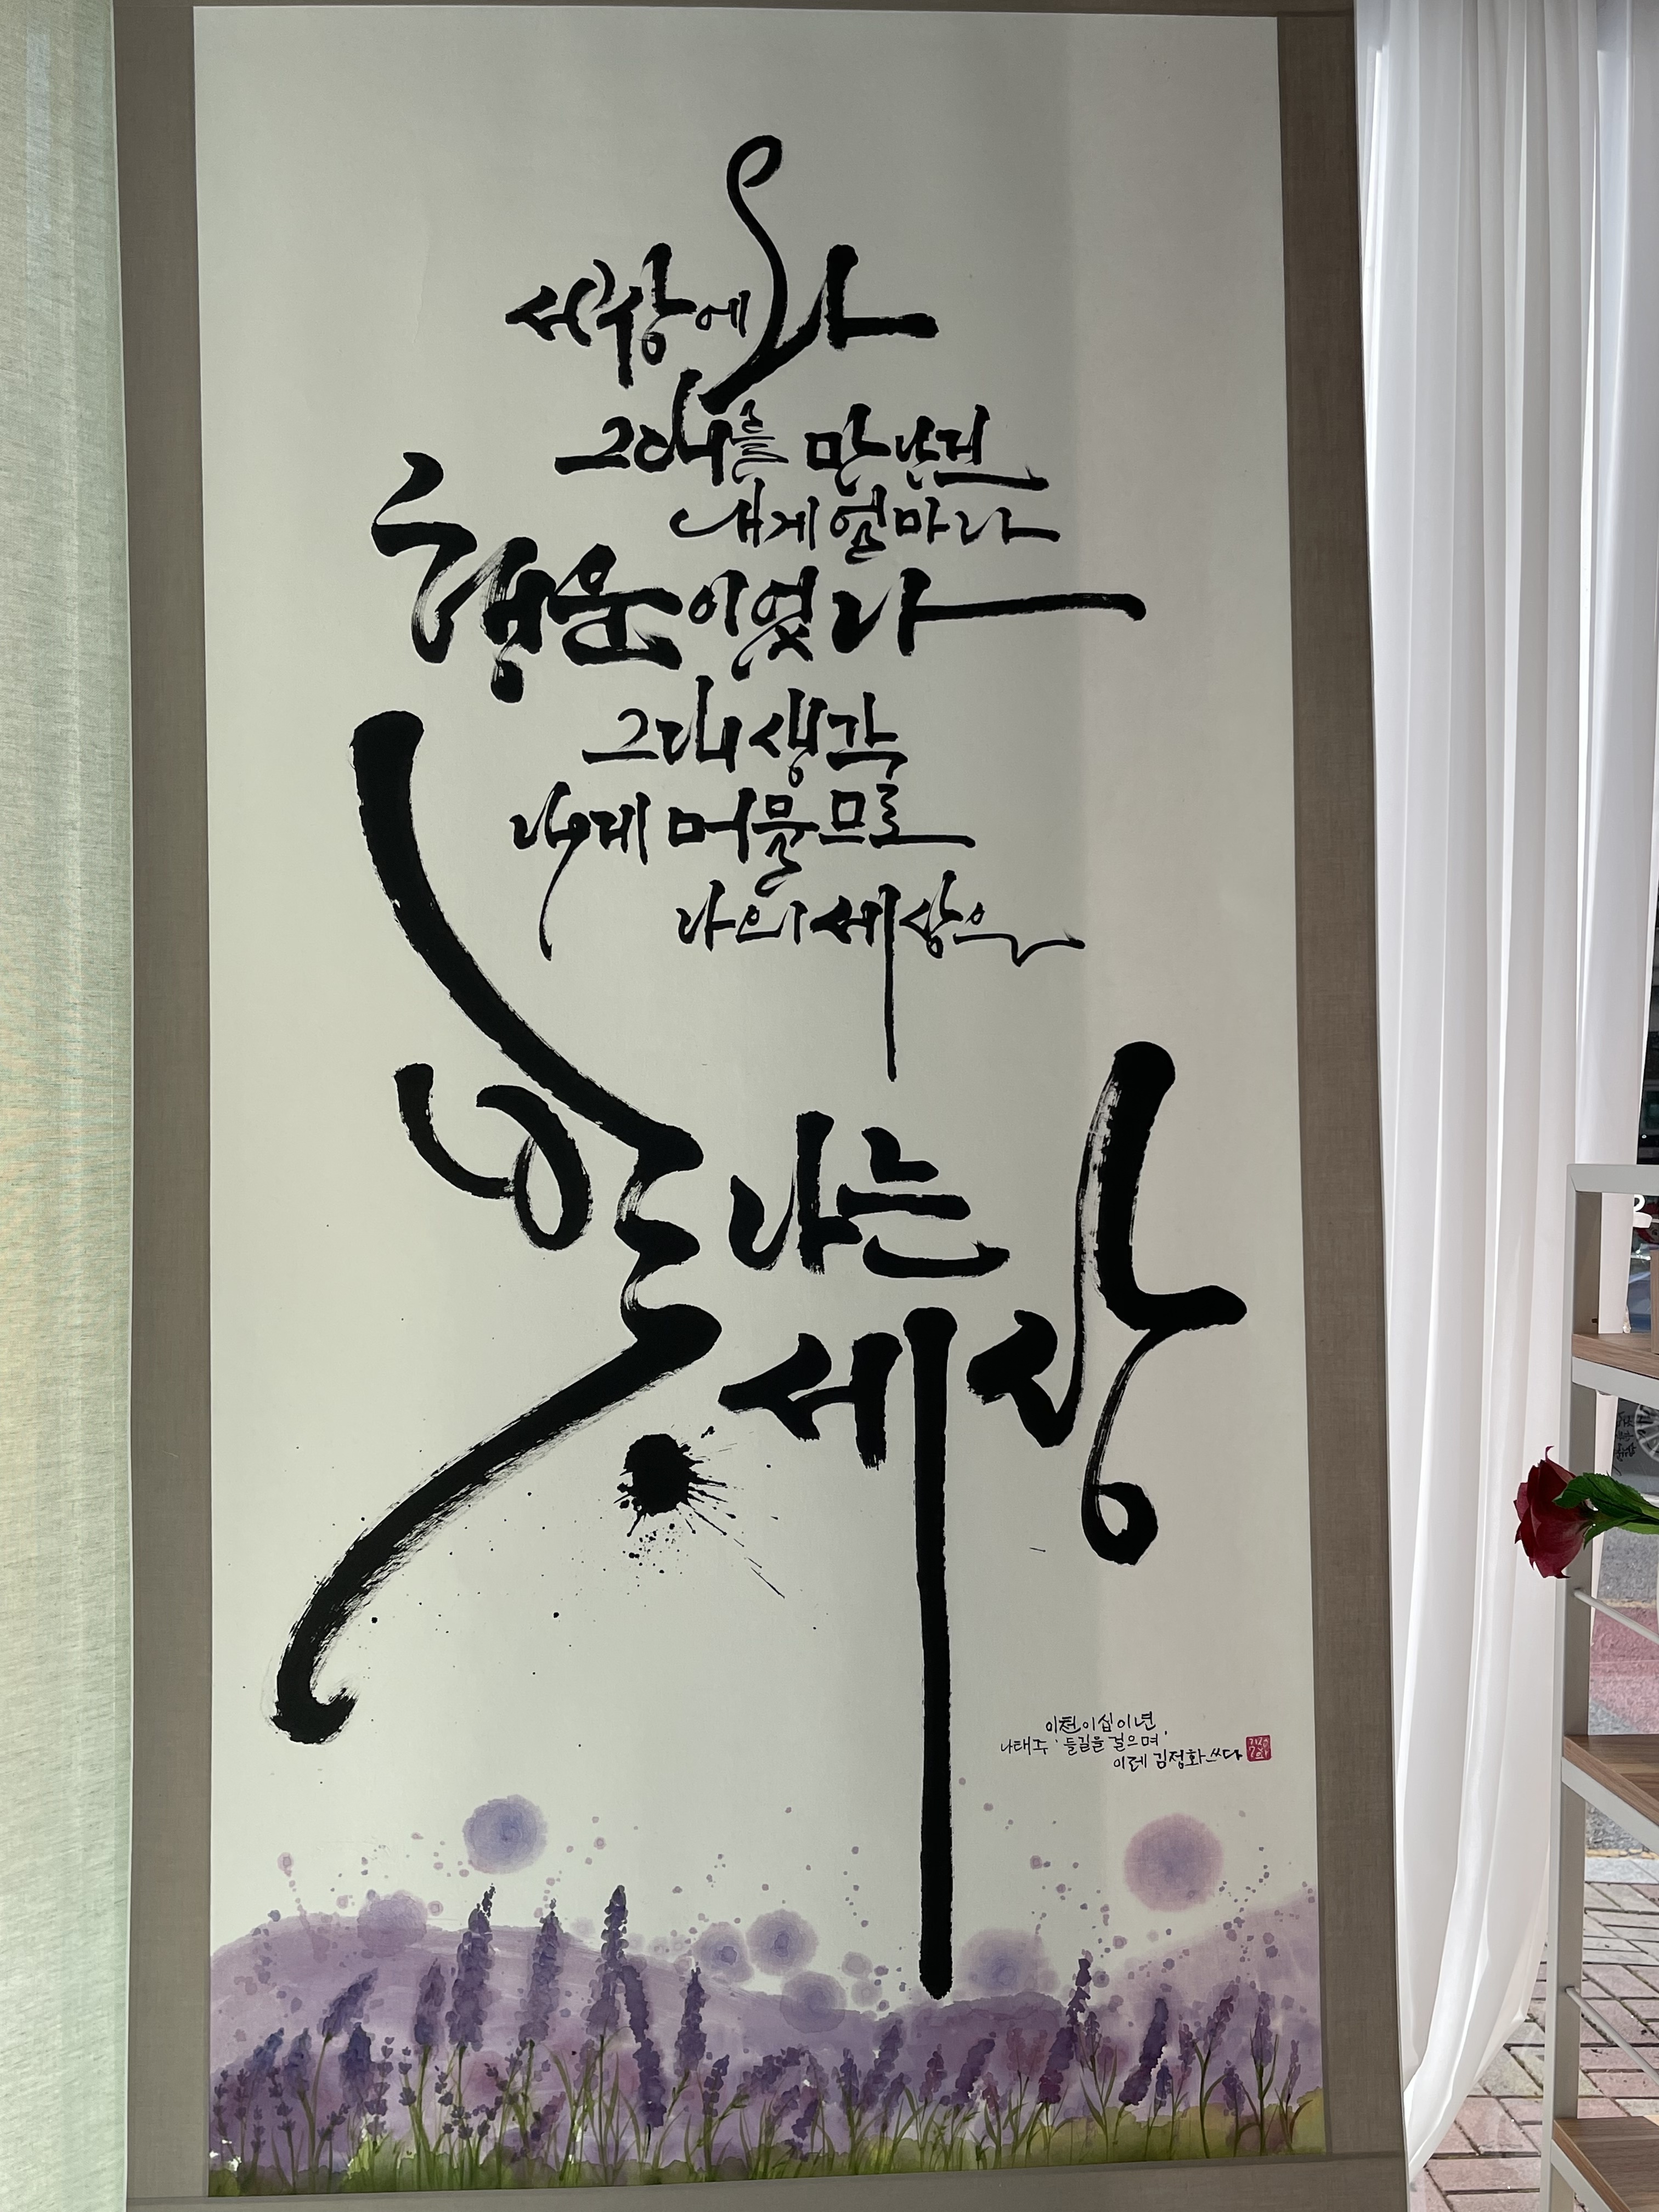 세상에 와
그대를 만난 건
내게 얼마나
행운이었나
그대 생각
내게 머물므로
나의 세상은
빛나는
세상
이천이십이년
나태주 · 들길을 걸으며,
이레 김정화 쓰다